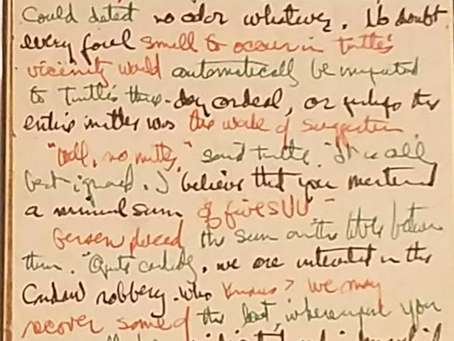 Could detect no odor whatever. No doubt
every foul smell to occur in Tuttle's
vicinity would automatically be imputed
to Tuttle's three-day ordeal, or perhaps the
entire matter was the work of suggestion
"Well, no matter," said Tuttle. "It is all
best ignored. I believe that you mentioned
a minimal sum of five SVU"
Gersen placed the sum on the table before
them. "Quite candidly, we are interested in the
robbery. Who knows? We may
recover some of the loot, whereupon you